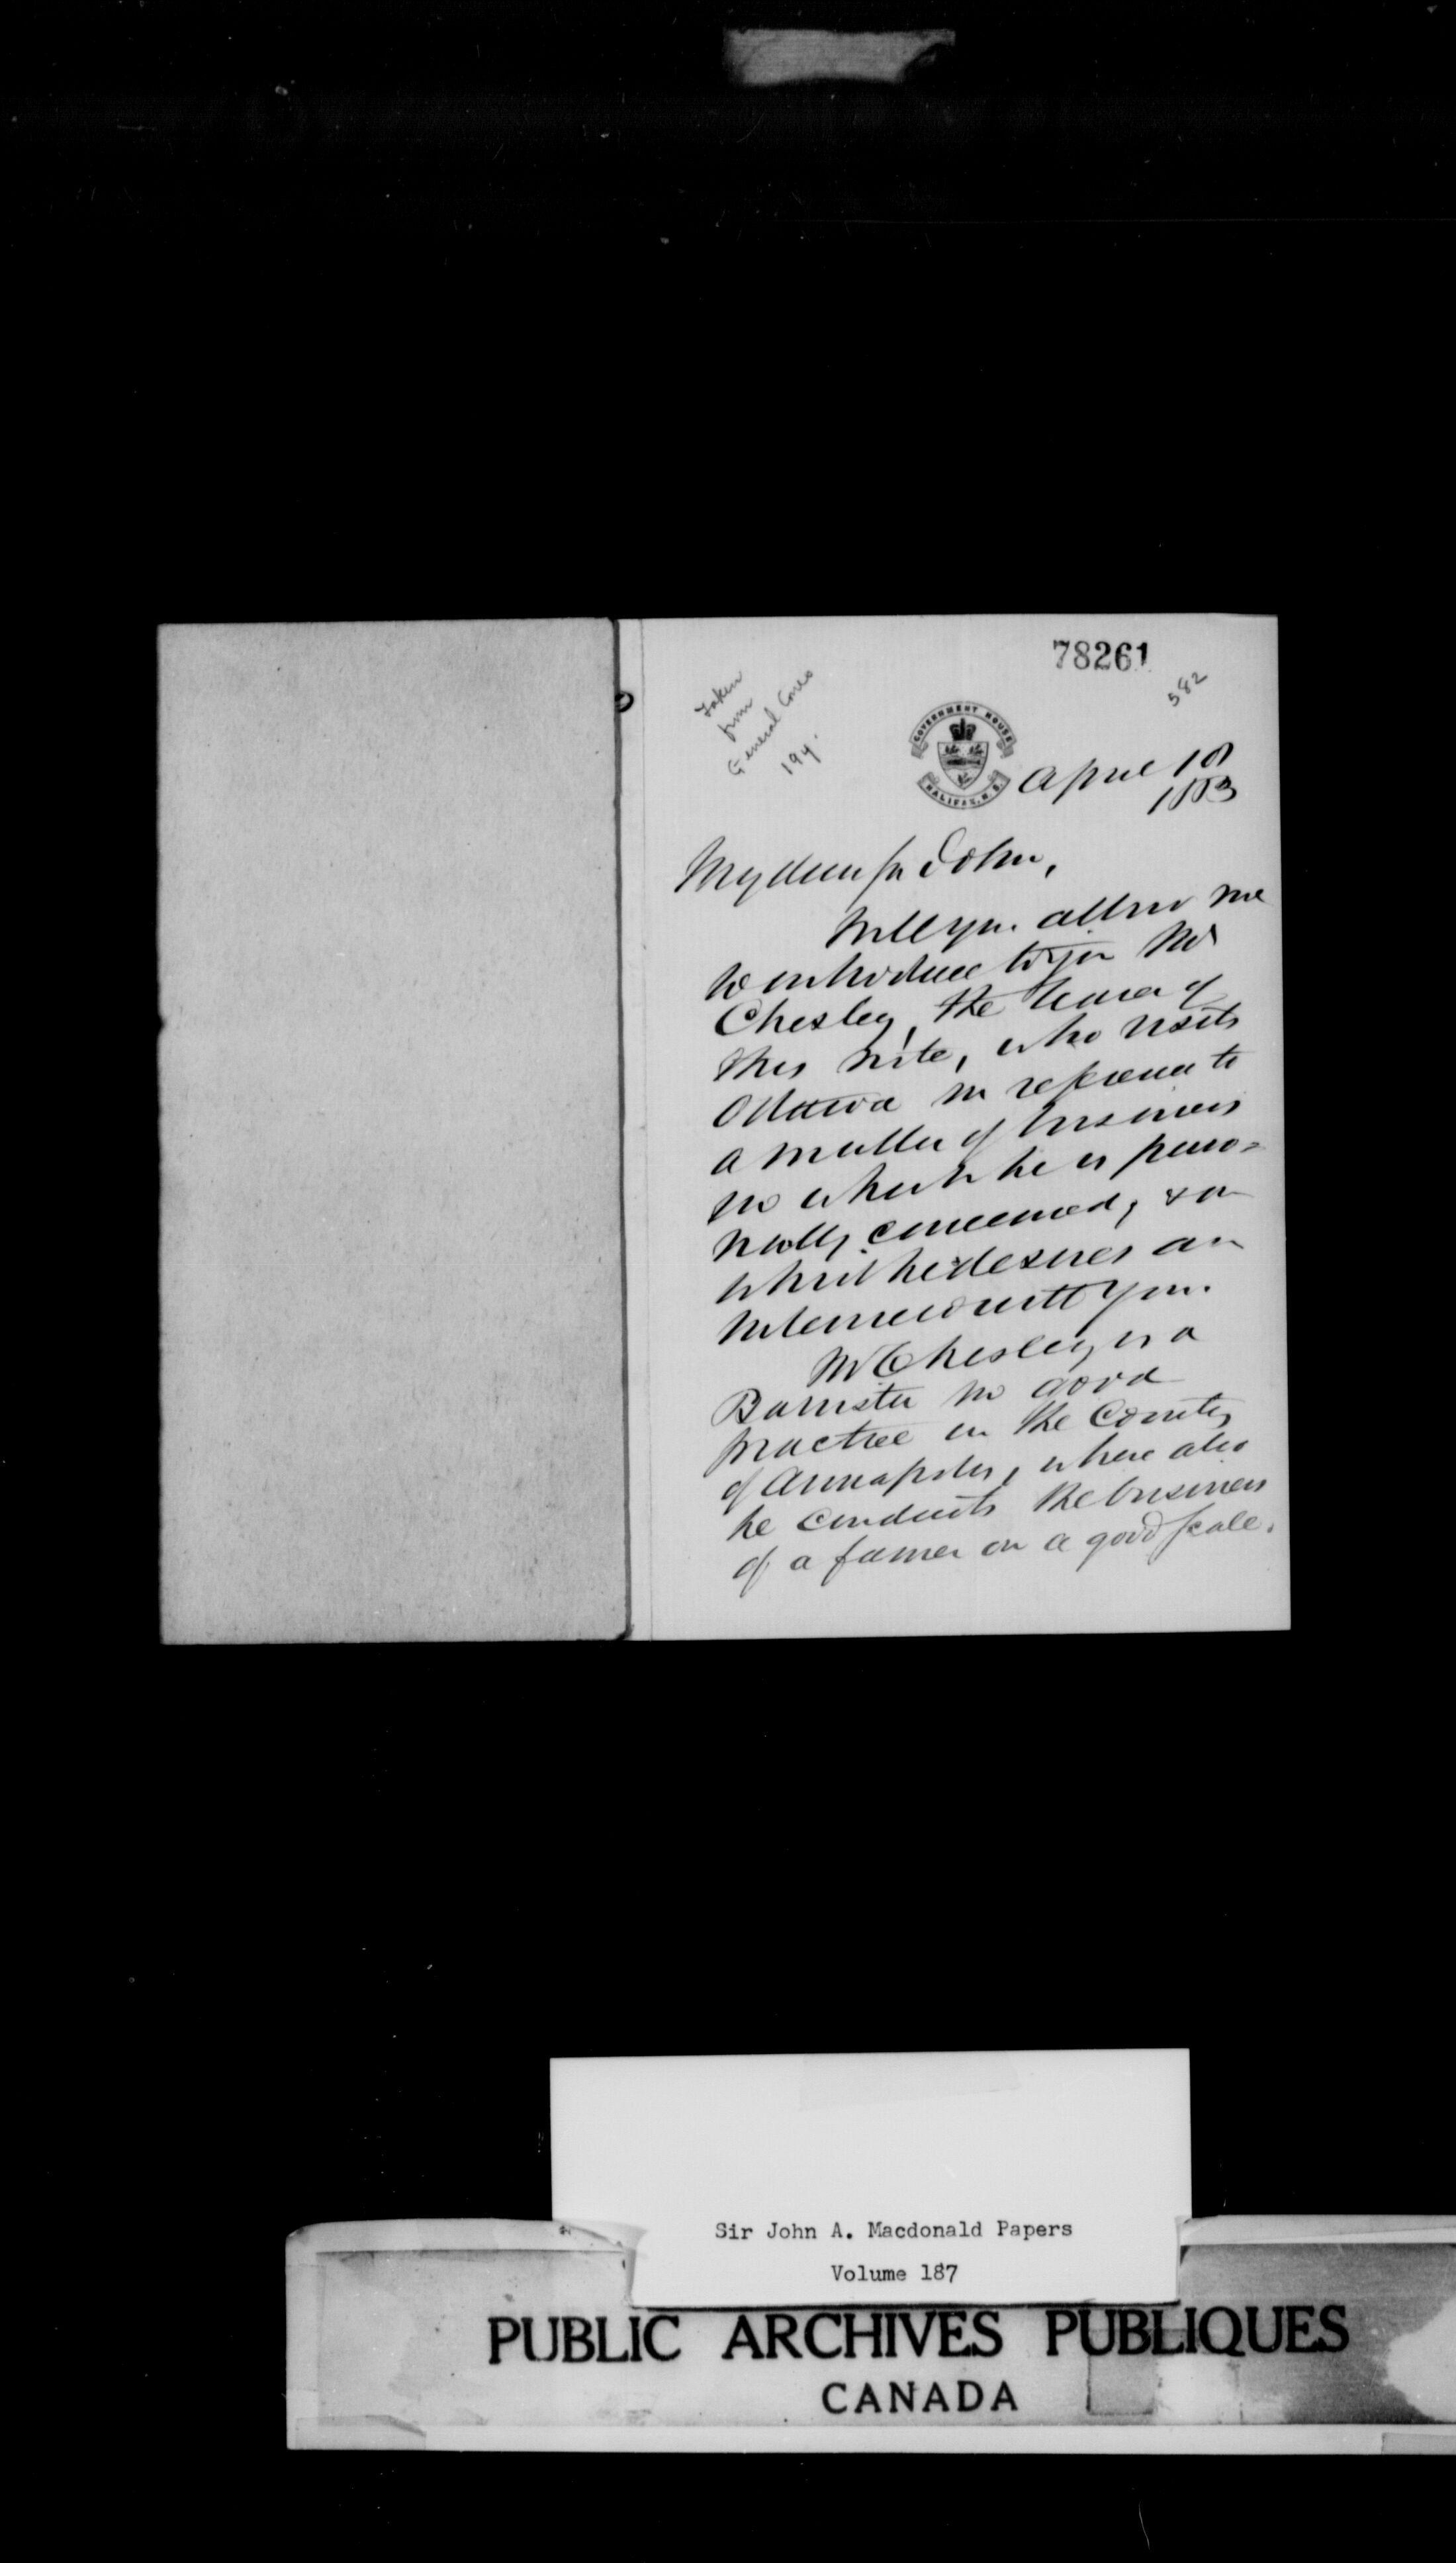 78261
582
Taken
from
General Corres
194.
GOVERNMENT HOUSE
HALIFAX, N.S.
April 18
1883
My dear Sir John,
Will you allow me
to introduce to you Mr
Chesley, the bearer of
this note, who visits
Ottawa in reference to
a matter of business
in which he is perso=
nally concerned, & on
which he desires an
interview with you.
Mr Chesley is a
Barrister in good
practice in the County
of Annapolis, where also
he conducts the business
of a farmer on a good scale.
Sir John A. Macdonald Papers
Volume 187
PUBLIC ARCHIVES PUBLIQUES
CANADA